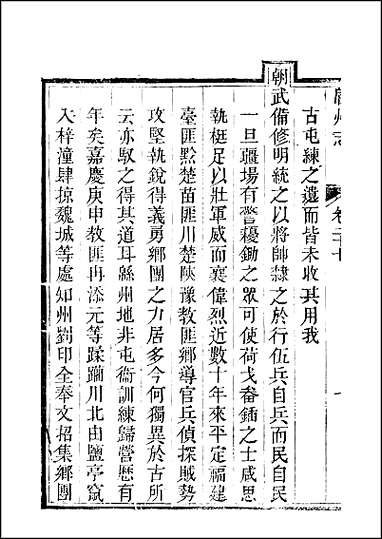 古屯練之遺而皆未收其用我
朝武備修明統之以將帥隸之於行伍兵自兵而民自民
一旦疆場有警耰鋤之眾可使荷戈畚鍤之士咸思
執梃足以壯軍威而襄偉烈近數十年來平定福建
臺匪黔楚苗匪川楚陝豫教匪鄉導官兵偵探賊勢
攻堅執銳得義勇鄉團之力居多今何獨異於古所
云亦馭之得其道耳緜州地非屯衞訓練歸營歷有
年矣嘉慶庚申教匪冉添元等蹂躪川北由鹽亭竄
入梓潼肆掠魏城等處知州劉印全奉文招集鄉團
州志
卷二十